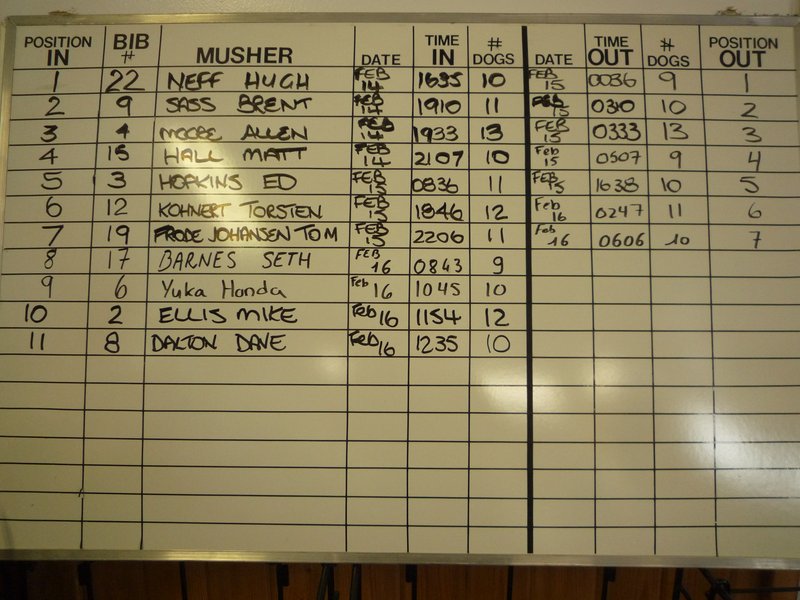 POSITION IN BIB # MUSHER DATE TIME IN # DOGS DATE TIME OUT # DOGS POSITION OUT
1 22 NEFF HUGH FEB 14 1635 10 FEB 15 0036 9 1
2 9 SASS BRENT FEB 14 1910 11 FEB 15 0310 10 2
3 4 MOORE ALLEN FEB 14 1933 13 FEB 15 0333 13 3
4 15 HALL MATT FEB 14 2107 10 Feb 15 0507 9 4
5 13 HOPKINS ED FEB 15 0836 11 FEB 15 1638 10 5
6 12 KOHNERT TORSTEN FEB 15 1846 12 Feb 16 0247 11 6
7 19 FRODE JOHANSEN TOM FEB 15 2206 11 Feb 16 0606 10 7
8 17 BARNES SETH FEB 16 0843 9
9 6 Yuka Honda Feb 16 1045 10
10 2 ELLIS MIKE Feb 16 1154 12
11 8 DALTON DAVE Feb 16 1235 10